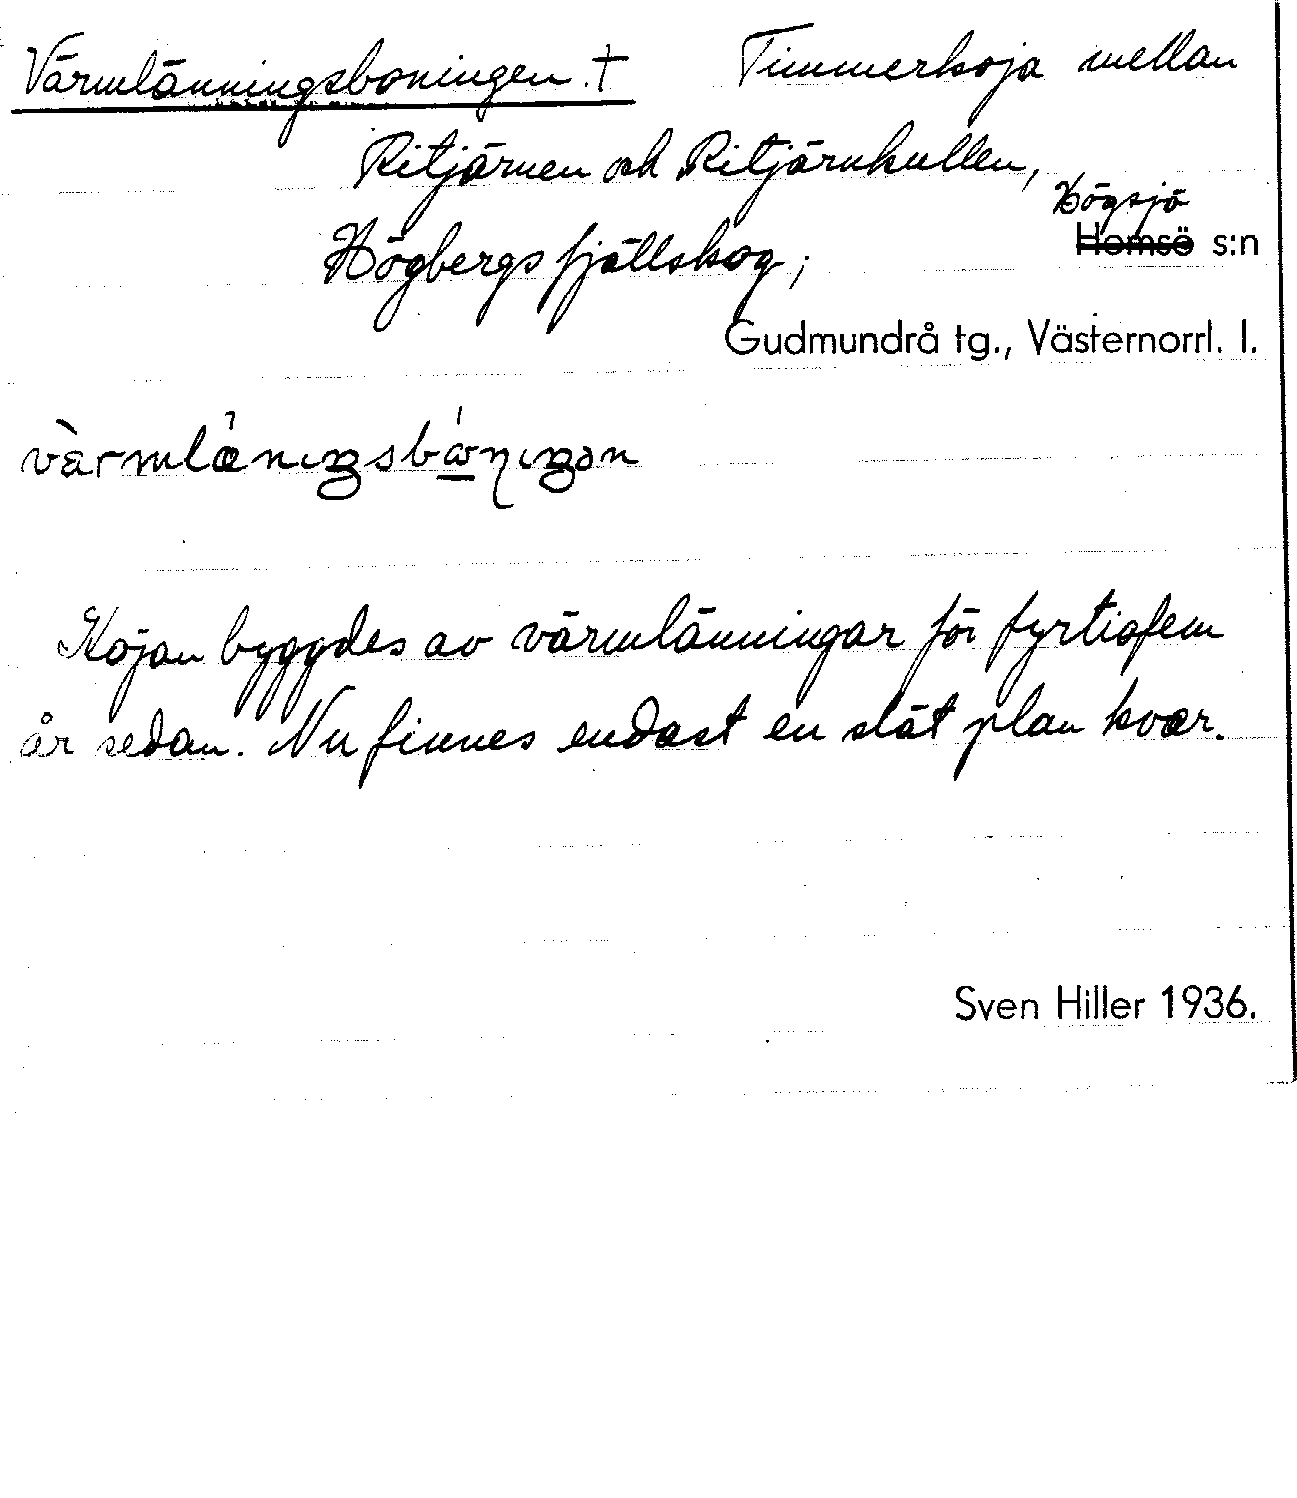 Värmlänningsboningen. † Timmerkoja mellan
Ritjärnen och Ritjärnkullen,
Högsjö
Högbergs fjällskog; Hemsö s:n
Gudmundrå tg., Västernorrl. l.
Kojan byggdes av värmlänningar för fyrtiofem
år sedan. Nu finnes endast en slät plan kvar.
Sven Hiller 1936.